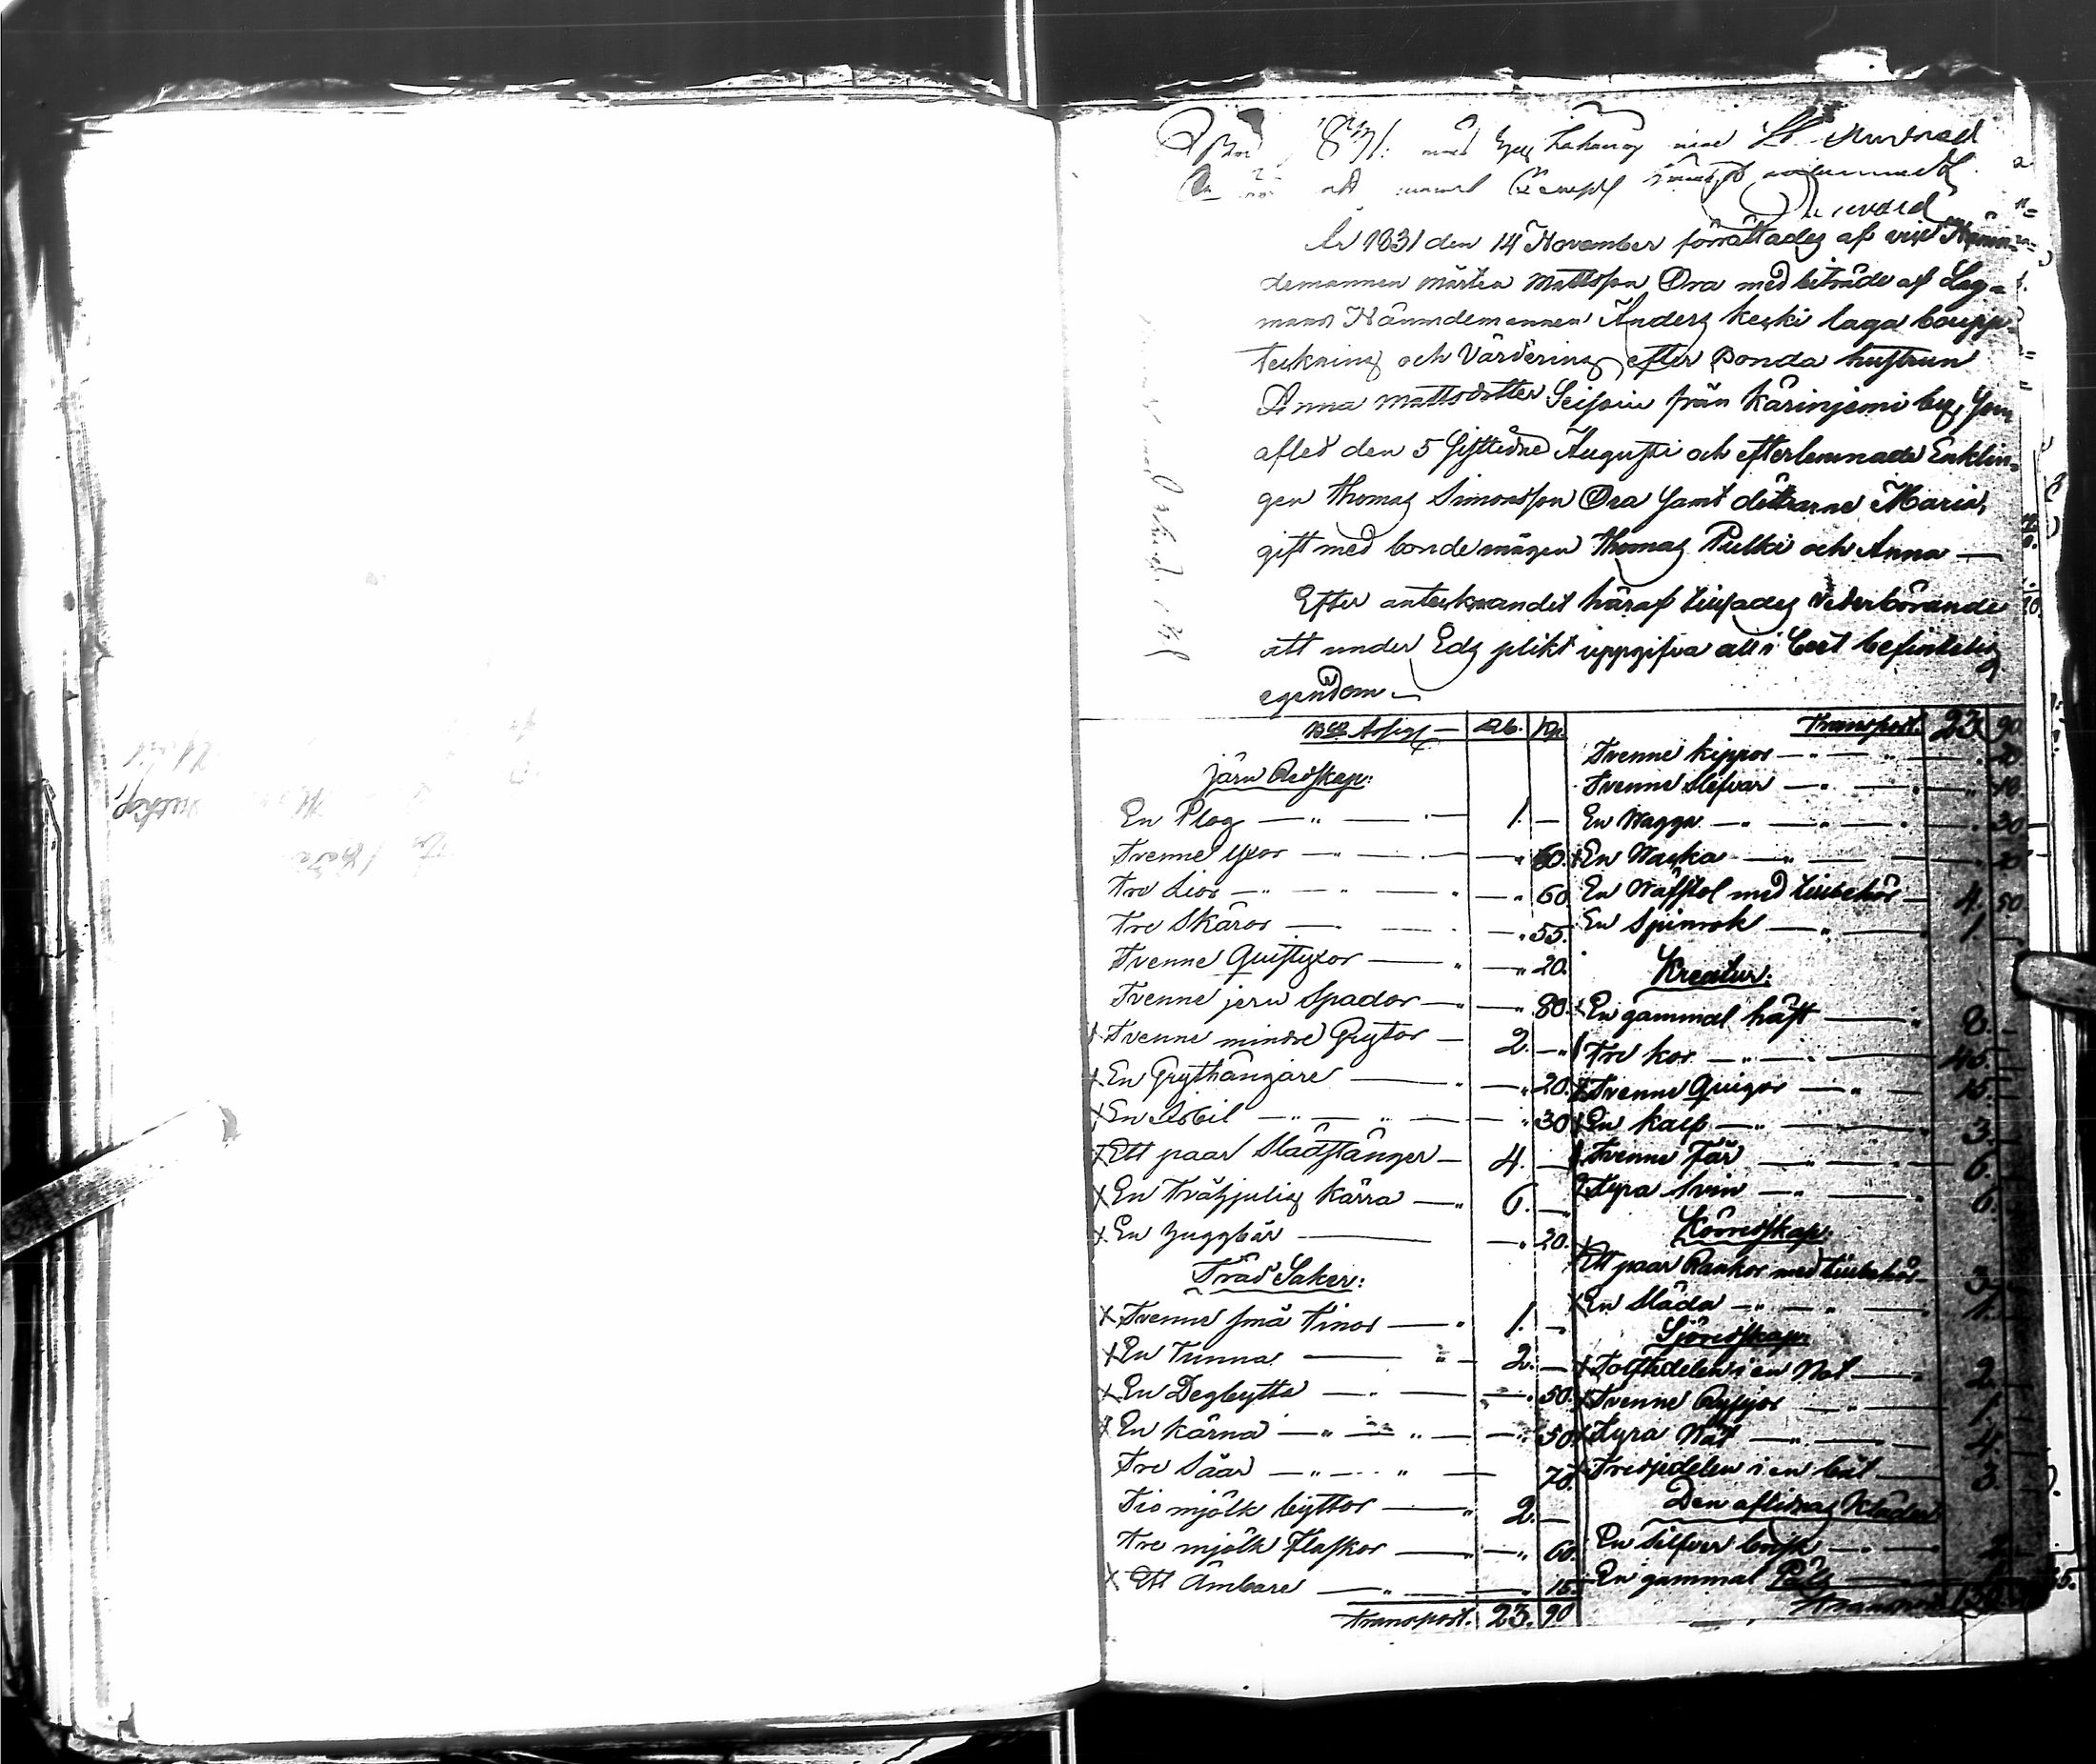 År 1831 den 14 November förrättades af vice Nämn-
demannen Mårten Mattsson Ora med biträde af Lag-
mans Nämndemannen Anders Keski laga boupp-
teckning och Värdering efter Bonda hustrun
Anna Mattsdotter Seisoin från Kärinjemi by, som
afled den 5 sistledne Augusti och efterlemnade Enklin-
gen Thomas Simonsson Ora samt döttrarne Maria,
gift med bonde mågen Thomas Pulki och Anna —
Efter antecknandet häraf tillsades vederbörande
att under Eds plikt uppgifva all i boet befintelig
egendom —
Bco Assign — Rb. Kp.
Järn Redskap:
En Plog — 1. —
Tvenne yxor — 60.
Tre Lior — 60.
Tre Skäror — 55.
Tvenne Quistyxor — 20.
Tvenne jern Spador — 80.
Tvenne mindre Grytor — 2. —
x En Grythängare — 20.
x En Isbil — 30
x Ett paar Slädstänger — 4. —
x En Tvåhjulig Kärra — 6. —
x En Juggbår — 20.
Träd Saker:
x Tvenne små Tinor — 1. —
x En Tunna — 2. —
x En Degbytta — 50.
x En Kärna — 50
Tre Såar — 70.
Tio mjölk byttor — 2. —
Tre mjölk Flaskor — 60.
x Ett Ämbare — 15.
Transport. 23. 90
Transport. 23. 90
Tvenne Kippor — 20
Tvenne Slefvar — 10.
En Wagga — 30
x En Waska — 20
En Wäfstol med tillbehör — 4. 50.
En Spinrok — 1. —
Kreatur:
x En gammal häst — 8. —
Tre kor — 45. —
x Tvenne Quigor — 15. —
x En kalf — 3. —
Tvenne Får — 6. —
Fyra Svin — 6. —
Körredskap:
x Ett paar Rankor med tillbehör — 3. —
x En Släda — 1. —
Sjöredskap:
x Tolftedelen i en Not — 2. —
x Tvenne Ryssjor — 1. —
x Fyra Nät — 4. —
Tredjedelen i en båt — 3. —
Den aflidnas Kläder
En Silfver brisk — 2. —
En gammal Päls —
Transport